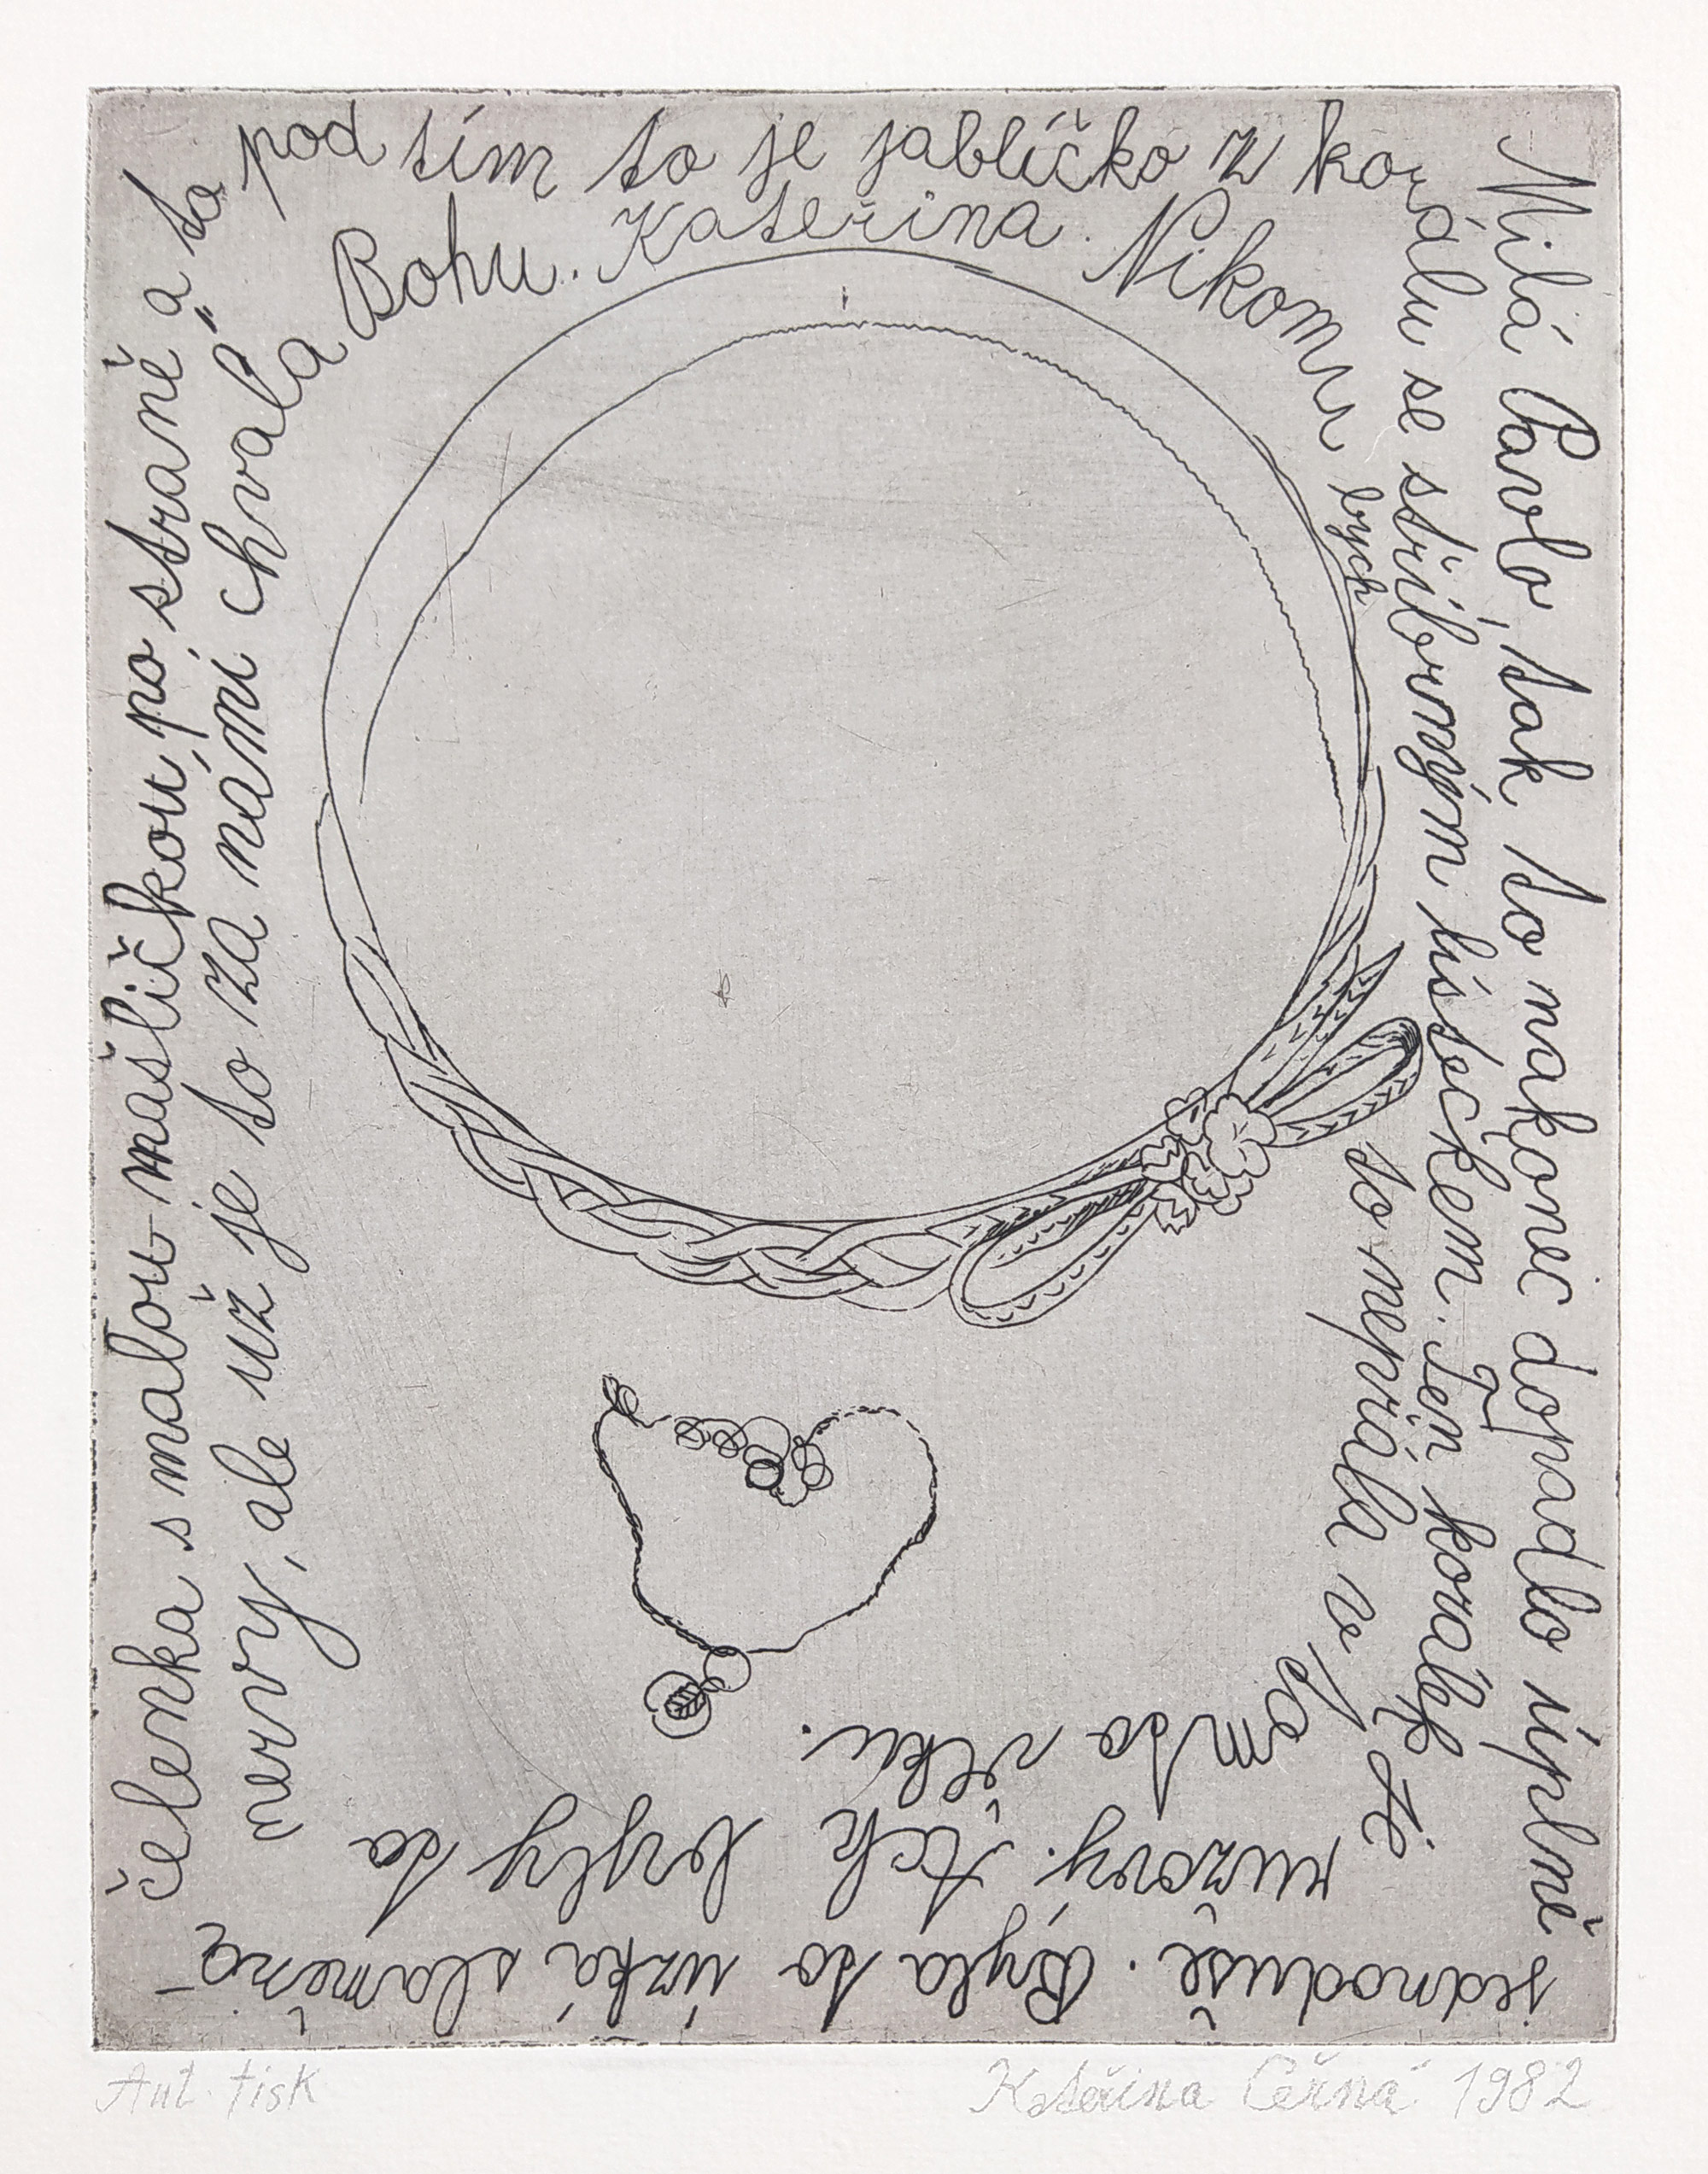 Milá Pavlo, tak to nakonec dopadlo úplně
jednoduše. Byla to úzká slaměná
čelenka s malou mašličkou, po straně a to
pod tím to je jablíčko z korálu se stříbrným lístečkem. Ten korálek je
růžový. Ach byly to
nervy, ale už je to za námi chvála
Bohu. Kateřina. Nikomu bych
to nepřála v tomto věku.
Aut. tisk
Kateřina Černá 1982